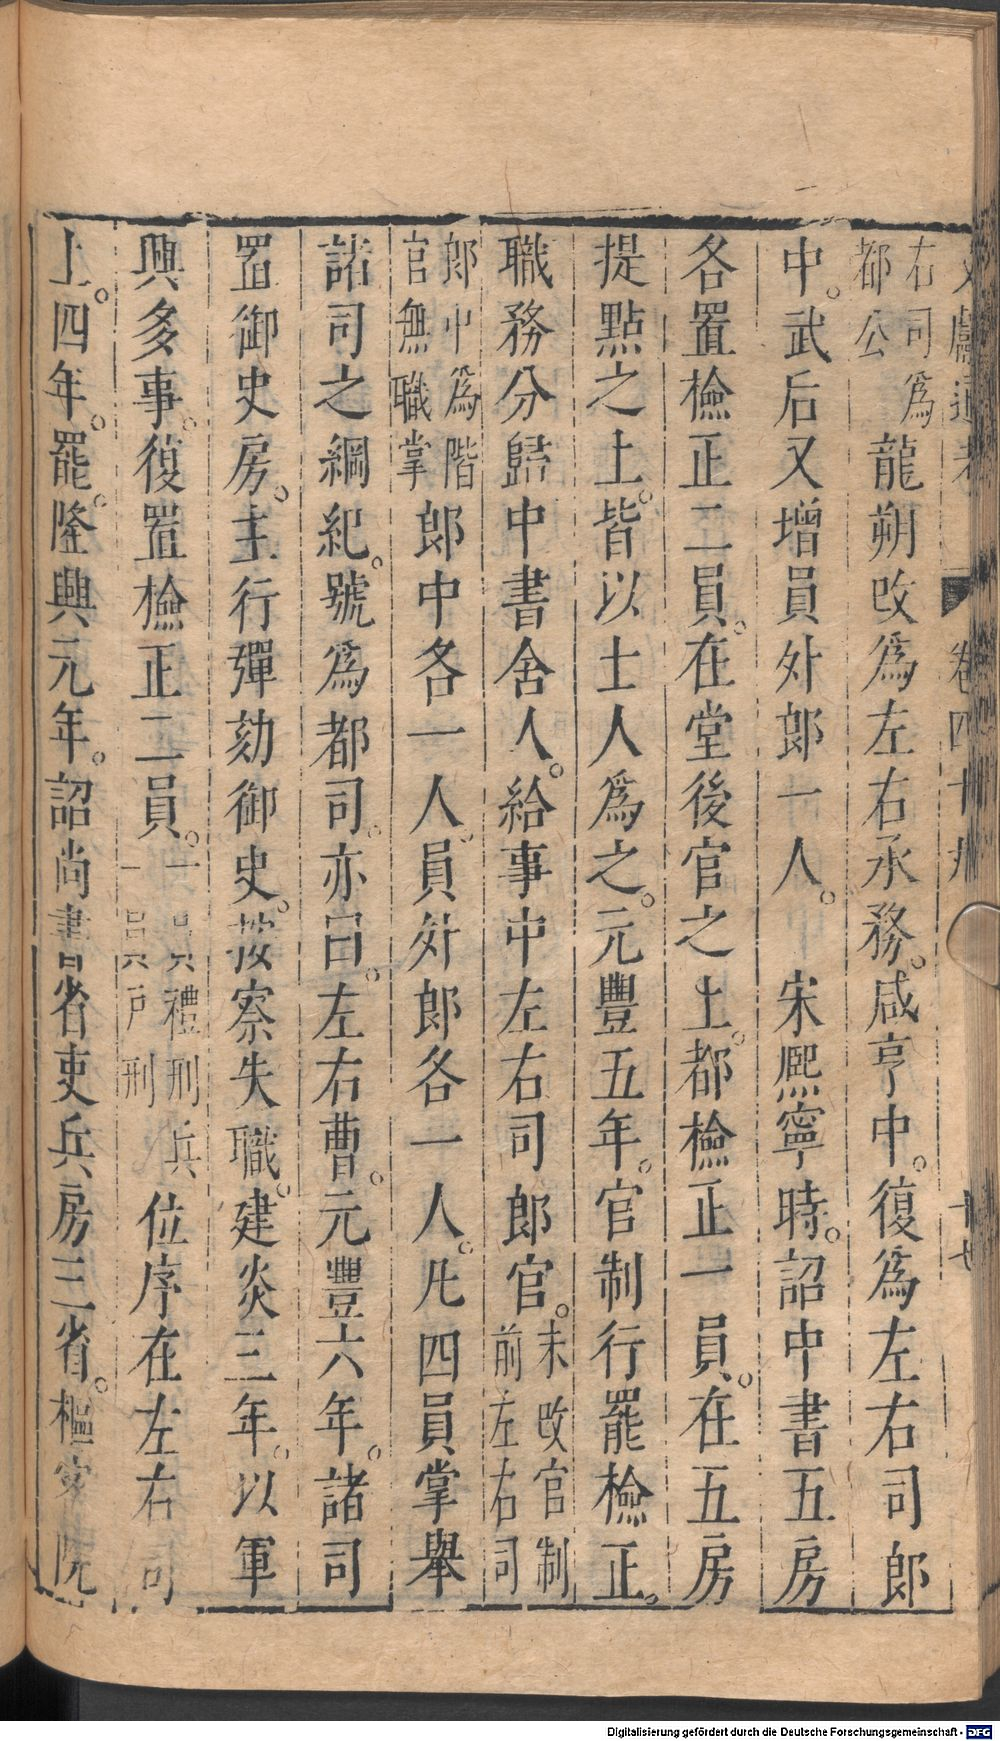 文獻通考 卷四十九 十七
右司爲都公龍朔改爲左右承務。咸亨中。復爲左右司郎
中。武后又增員外郎一人。宋熈寧時。詔中書五房
各置檢正二員。在堂後官之上。都檢正一員。在五房
提點之上。皆以士人爲之。元豐五年。官制行罷檢正。
職務分歸中書舍人。給事中左右司郎官。未改官制前左右司
郎中爲階官無職掌郎中各一人。員外郎各一人。凡四員掌舉
諸司之綱紀。號爲都司。亦曰。左右曹。元豐六年。諸司
置御史房。主行彈劾御史。按察失職。建炎三年。以軍
興多事。復置檢正二員。一員禮刑兵一員戶刑位序在左右司
上。四年。罷。隆興元年。詔尚書省吏兵房三省。樞密院
Digitalisierung gefördert durch die Deutsche Forschungsgemeinschaft - DFG